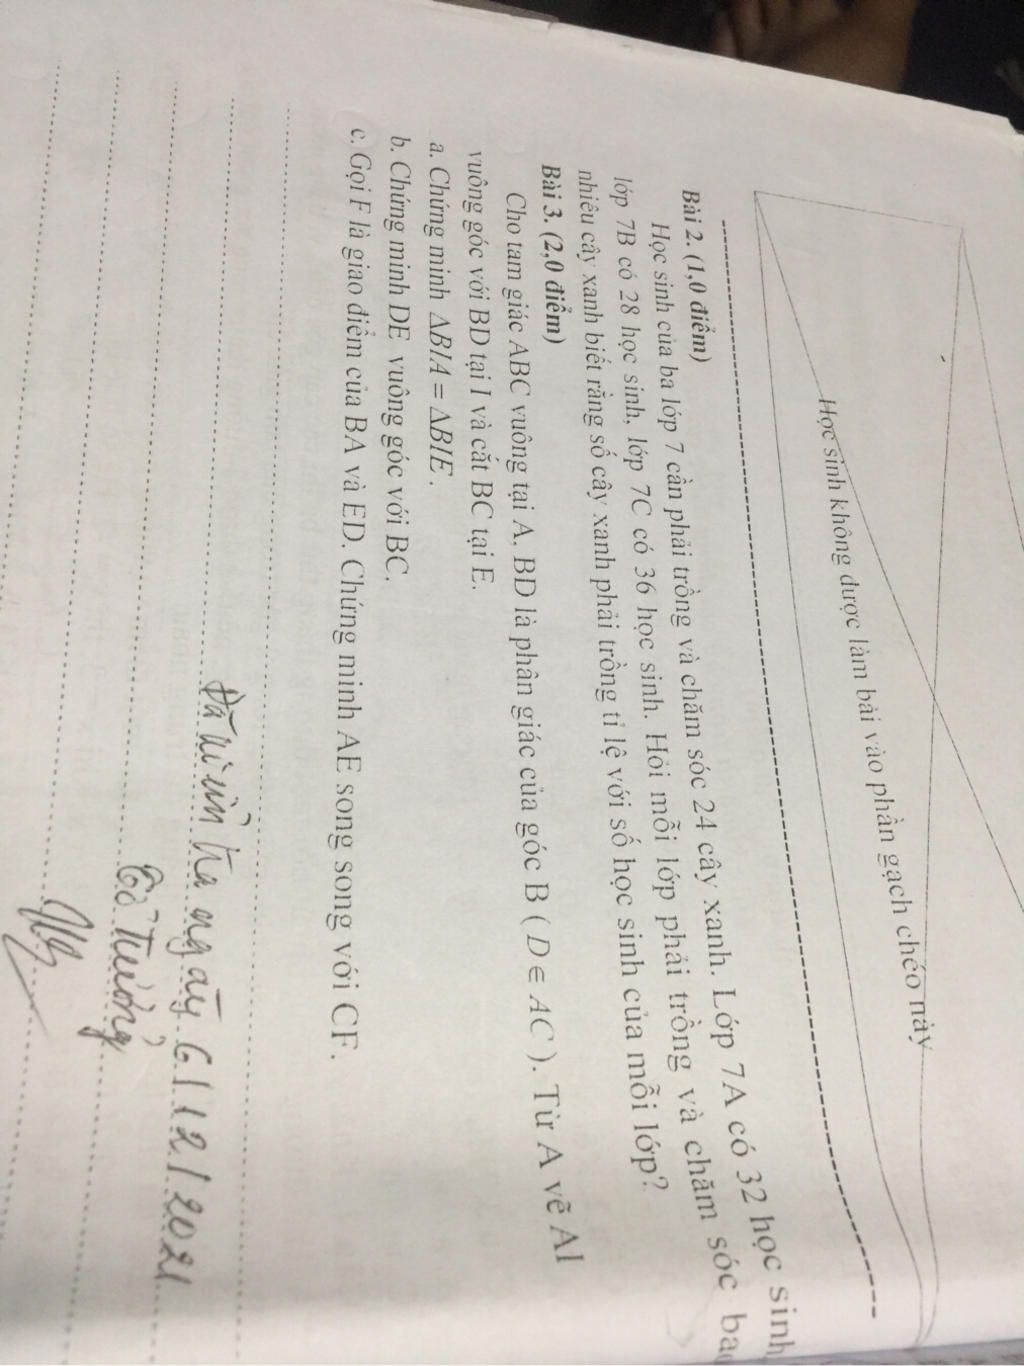 Học sinh không được làm bài vào phần gạch chéo này
Bài 2. (1,0 điểm)
Học sinh của ba lớp 7 cần phải trồng và chăm sóc 24 cây xanh. Lớp 7A có 32 học sinh
lớp 7B có 28 học sinh, lớp 7C có 36 học sinh. Hỏi mỗi lớp phải trồng và chăm sóc bao
nhiêu cây xanh biết rằng số cây xanh phải trồng tỉ lệ với số học sinh của mỗi lớp?
Bài 3. (2,0 điểm)
Cho tam giác ABC vuông tại A. BD là phân giác của góc B ( D ∈ AC ). Từ A vẽ AI
vuông góc với BD tại I và cắt BC tại E.
a. Chứng minh ΔBIA = ΔBIE .
b. Chứng minh DE vuông góc với BC.
c. Gọi F là giao điểm của BA và ED. Chứng minh AE song song với CF.
ngày 6/12/2021
Tổ Trưởng